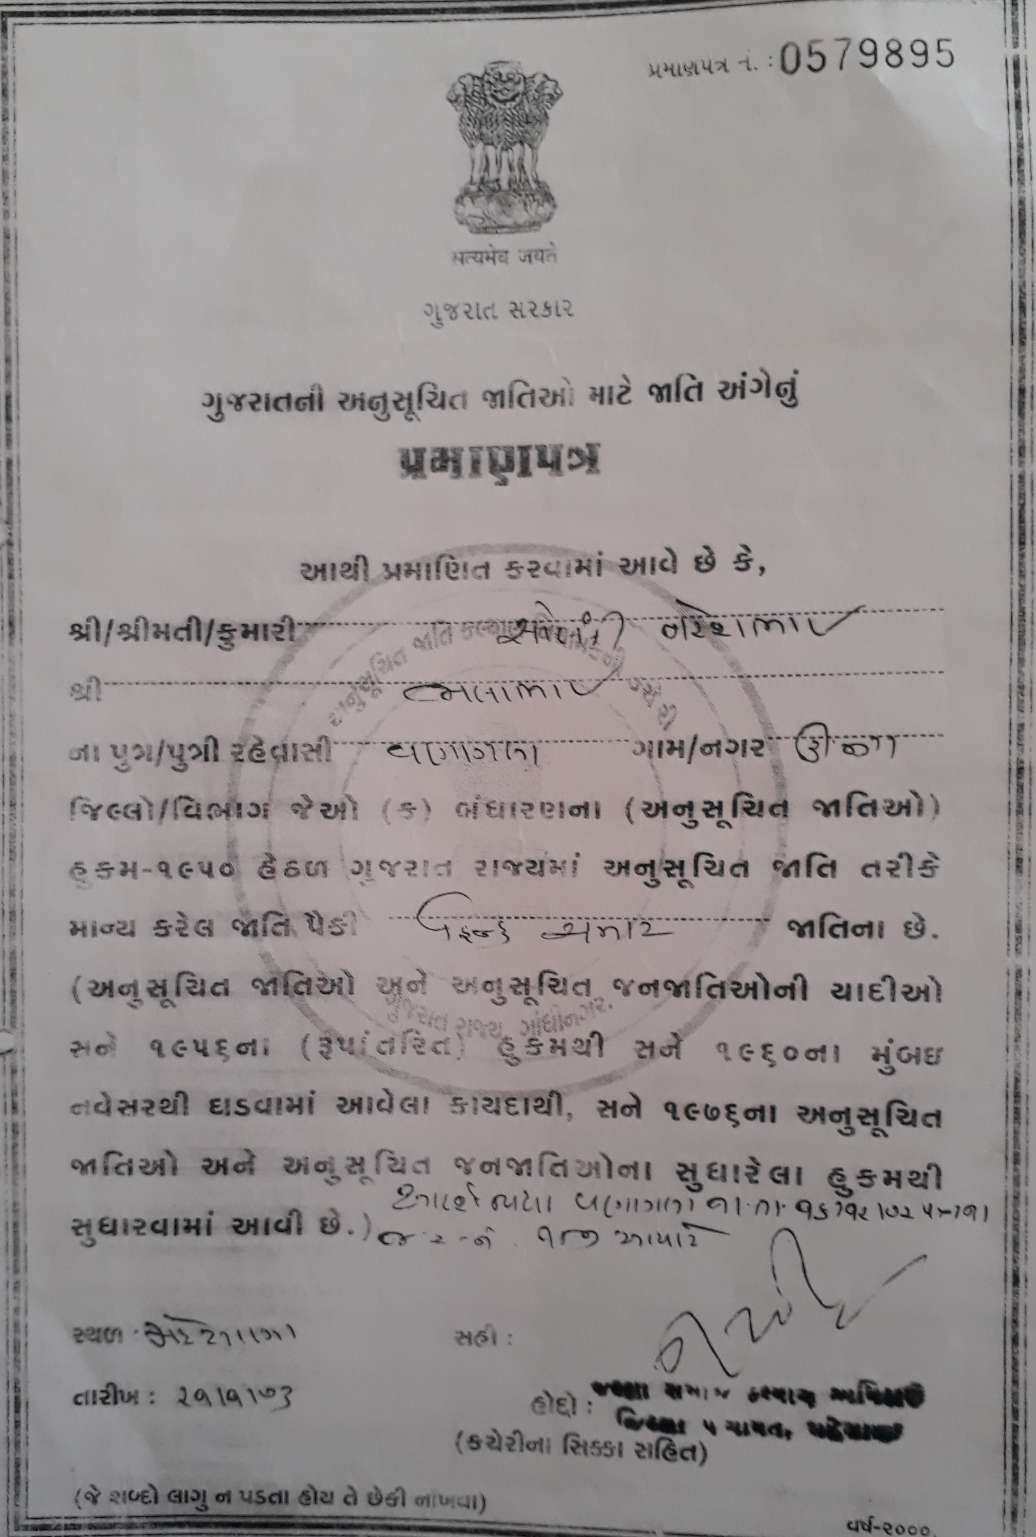 પ્રમાણપત્ર નં. : 0579895
सत्यमेव जयते
ગુજરાત સરકાર
ગુજરાતની અનુસૂચિત જાતિઓ માટે જાતિ અંગેનું
પ્રમાણપત્ર
આથી પ્રમાણિત કરવામાં આવે છે કે,
શ્રી/શ્રીમતી/કુમારી સોલંકી નરેશભાઇ
શ્રી
ના પુત્ર/પુત્રી રહેવાસી ગામ/નગર
જિલ્લો/વિભાગ જેઓ (ક) બંધારણના (અનુસૂચિત જાતિઓ)
હુકમ-૧૯૫૦ હેઠળ ગુજરાત રાજ્યમાં અનુસૂચિત જાતિ તરીકે
માન્ય કરેલ જાતિ પૈકી હિન્દુ ચમાર જાતિના છે.
(અનુસૂચિત જાતિઓ અને અનુસૂચિત જનજાતિઓની યાદીઓ
ગુજરાત રાજ્ય, ગાંધીનગર.
સને ૧૯૫૬ના (રૂપાંતરિત) હુકમથી સને ૧૯૬૦ના મુંબઇ
નવેસરથી ઘડવામાં આવેલા કાયદાથી, સને ૧૯૭૬ના અનુસૂચિત
જાતિઓ અને અનુસૂચિત જનજાતિઓના સુધારેલા હુકમથી
સુધારવામાં આવી છે.)
સ્થળ
સહી :
તારીખ :
હોદ્દો : જિલ્લા સમાજ કલ્યાણ અધિકારી
જિલ્લા પંચાયત,
(કચેરીના સિક્કા સહિત)
(જે શબ્દો લાગુ ન પડતા હોય તે છેકી નાંખવા)
વર્ષ-૨૦૦૦